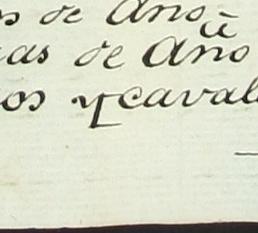 os de Año
as de Año
os y caval